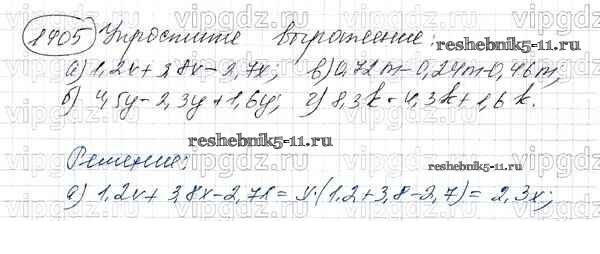 1405 Упростите выражение:
а) 1,2x + 3,8x - 2,7x; в) 0,72m - 0,24m - 0,46m;
б) 4,5y - 2,3y + 1,6y; г) 8,3k - 4,3k + 1,6k.
reshebnik5-11.ru
reshebnik5-11.ru
reshebnik5-11.ru
Решение:
а) 1,2x + 3,8x - 2,7x = x·(1,2 + 3,8 - 2,7) = 2,3x;
vipgdz.ru vipgdz.ru vipgdz.ru vipgdz.ru